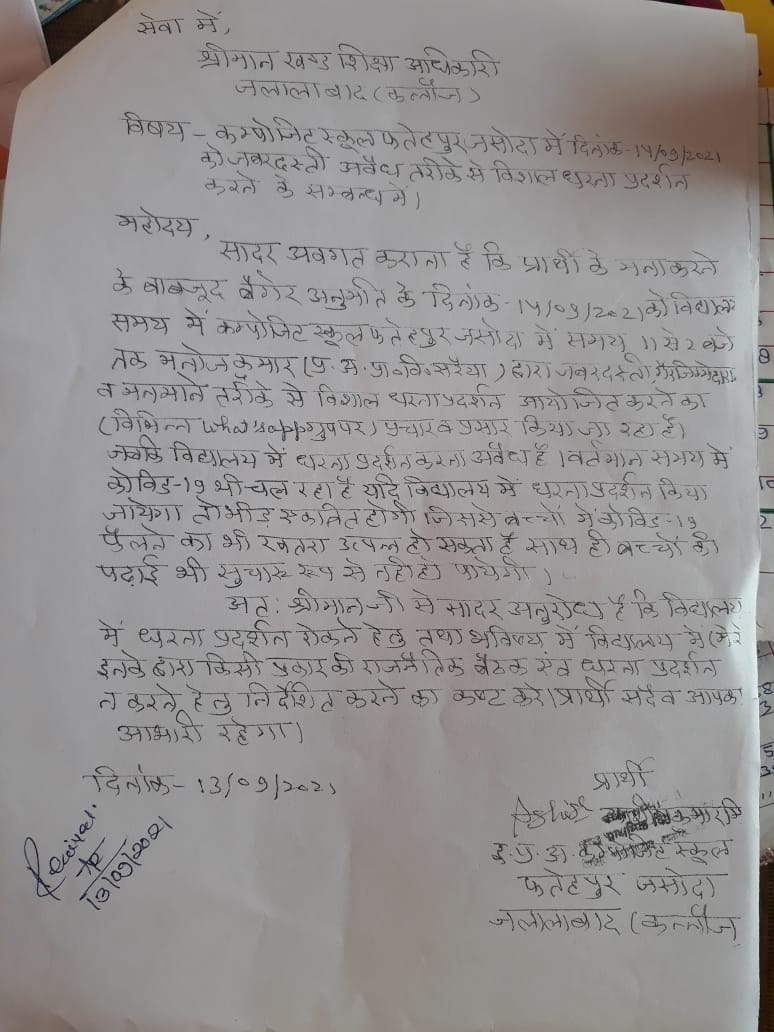 सेवा में,
श्रीमान खण्ड शिक्षा अधिकारी
जलालाबाद (कन्नौज)
विषय - कम्पोजिट स्कूल फतेहपुर जसोदा में दिनांक-14/09/2021
को जबरदस्ती अवैध तरीके से विशाल धरना प्रदर्शन
करने के सम्बन्ध में।
महोदय,
सादर अवगत कराना है कि प्रार्थी के मना करने
के बाबजूद बैगेर अनुमति के दिनांक-14/09/2021 को विद्यालय
समय में कम्पोजिट स्कूल फतेहपुर जसोदा में समय 11 से 2 बजे
तक मनोज कुमार (प्र.अ. प्रा.वि. सरैया) द्वारा जबरदस्ती,
व मनमाने तरीके से विशाल धरना प्रदर्शन आयोजित करने का
(विभिन्न what's app ग्रुप पर) प्रचार व प्रसार किया जा रहा है।
जबकि विद्यालय में धरना प्रदर्शन करना अवैध है। वर्तमान समय में
कोविड-19 भी चल रहा है यदि विद्यालय में धरना प्रदर्शन किया
जायेगा तो भीड़ एकत्रित होगी जिससे बच्चों में कोविड-19
फैलने का भी खतरा उत्पन्न हो सकता है साथ ही बच्चों की
पढ़ाई भी सुचारू रूप से नही हो पायेगी।
अत: श्रीमान जी से सादर अनुरोध है कि विद्यालय
में धरना प्रदर्शन रोकने हेतु तथा भविष्य में विद्यालय में (मेरे
इनके द्वारा किसी प्रकार की राजनैतिक बैठक एंव धरना प्रदर्शन
न करने हेतु निर्देशित करने का कष्ट करे। प्रार्थी सदैव आपका
आभारी रहेगा।
दिनांक- 13/09/2021
प्रार्थी
इ.प्र.अ. कम्पोजिट स्कूल
फतेहपुर जसोदा
जलालाबाद (कन्नौज)
Received.
13/09/2021